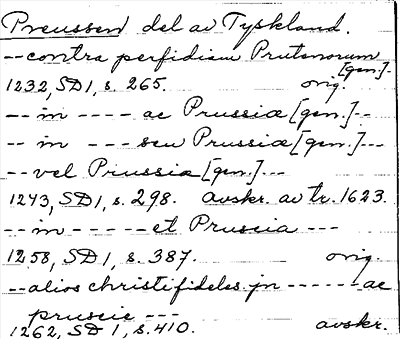 Preussen del av Tyskland.
-- contra perfidiam Prutenorum
[gen.]-
1232, SD 1, s. 265. orig.
-- in ---- ac Prussiæ [gen.]--
-- in --- seu Prussiæ [gen.]---
-- vel Prussiæ [gen.]---
1243, SD 1, s. 298. avskr. av tr. 1623.
-- in ----- et Pruscia ---
1258, SD 1, s. 387. orig.
-- alios christifideles jn ------ ac
pruscie ---
1262, SD 1, s. 410. avskr.